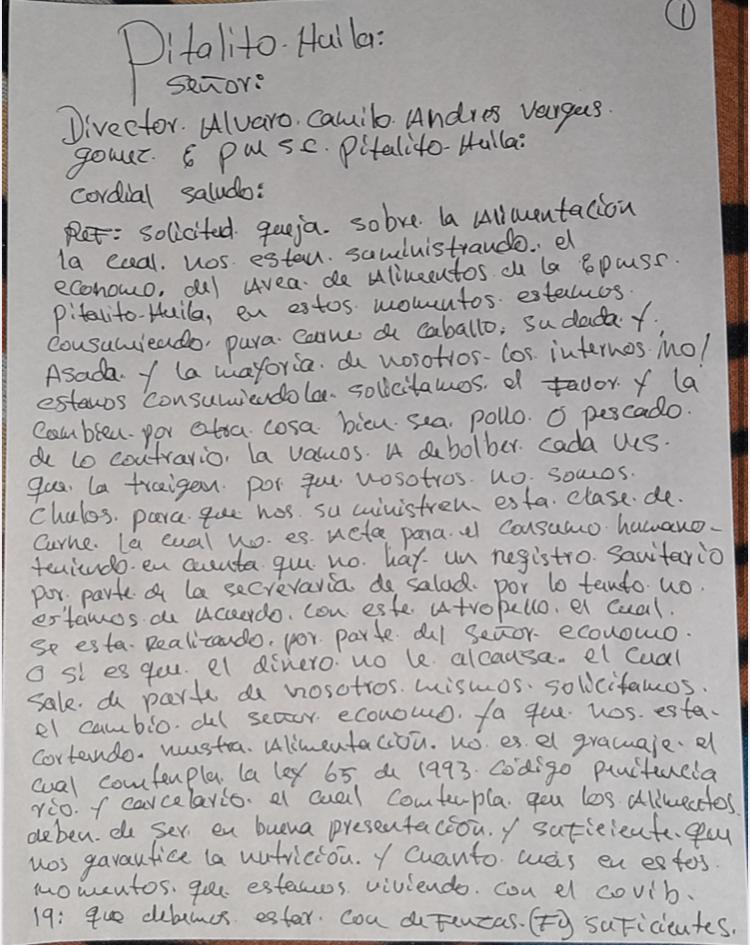 1
Pitalito-Huila:
Señor:
Director. Alvaro. Camilo. Andres Vargas.
gomez. E P M S C. Pitalito-Huila:
Cordial saludo:
REF: solicitud queja. sobre la Alimentación
la cual. nos estan. suministrando. el
economo. del Area. de Alimentos de la Epmsc.
Pitalito-Huila, en estos momentos estamos.
consumiendo. pura. carne de caballo. sudada y.
Asada. y la mayoria. de nosotros- los internos. no!
estamos consumiendola. solicitamos. el favor. y la
cambien. por otra cosa bien sea. pollo. O pescado.
de lo contrario. la vamos. A debolber. cada ves.
que. la traigan. por que nosotros. no. somos.
chulos. para que nos. suministren. esta. clase. de.
carne. la cual no. es. Acta para. el consumo humano-
teniendo en cuenta que no. hay. un registro. sanitario
por. parte de la secrevaria de salud. por lo tanto. no.
estamos de Acuerdo. con este. Atropello. el cual.
se esta. Realizando. por parte del señor. economo.
O si es que. el dinero. no le alcansa. el cual
sale. de parte de nosotros. mismos. solicitamos.
el cambio. del señor. economo. ya que. nos. esta-
cortando. nuestra. Alimentación. no. es. el gramaje. el
cual comtenpla. la ley 65 de 1993. código penitencia
rio. y carcelario. el cual comtenpla. que los Alimentos
deben. de ser. en buena presentación. y suficiente. que
nos garantice la nutrición. y cuanto. mas en estos.
momentos. que. estamos viviendo. con el covib.
19: que debemos estar. con defenzas. (Fi) suficientes.